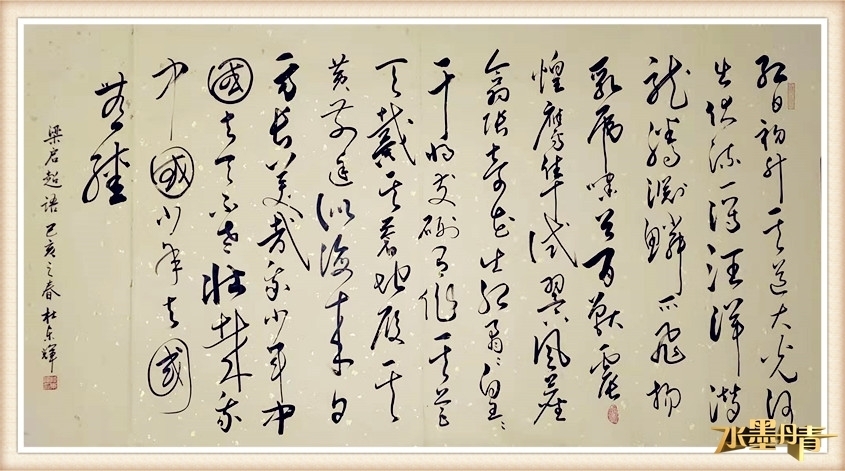 红日初升其道大光河
出伏流一泻汪洋潜
龙腾渊鳞爪飞扬
乳虎啸谷百兽震
惶鹰隼试翼风尘
翕张奇花矞矞皇皇
干将发硎有作其芒
天戴其苍地履其
黄前途似海来日
方长美哉我少年中
國与天不老壮哉我
中國少年与國
无疆
梁启超语 己亥之春 杜东辉
水墨丹青